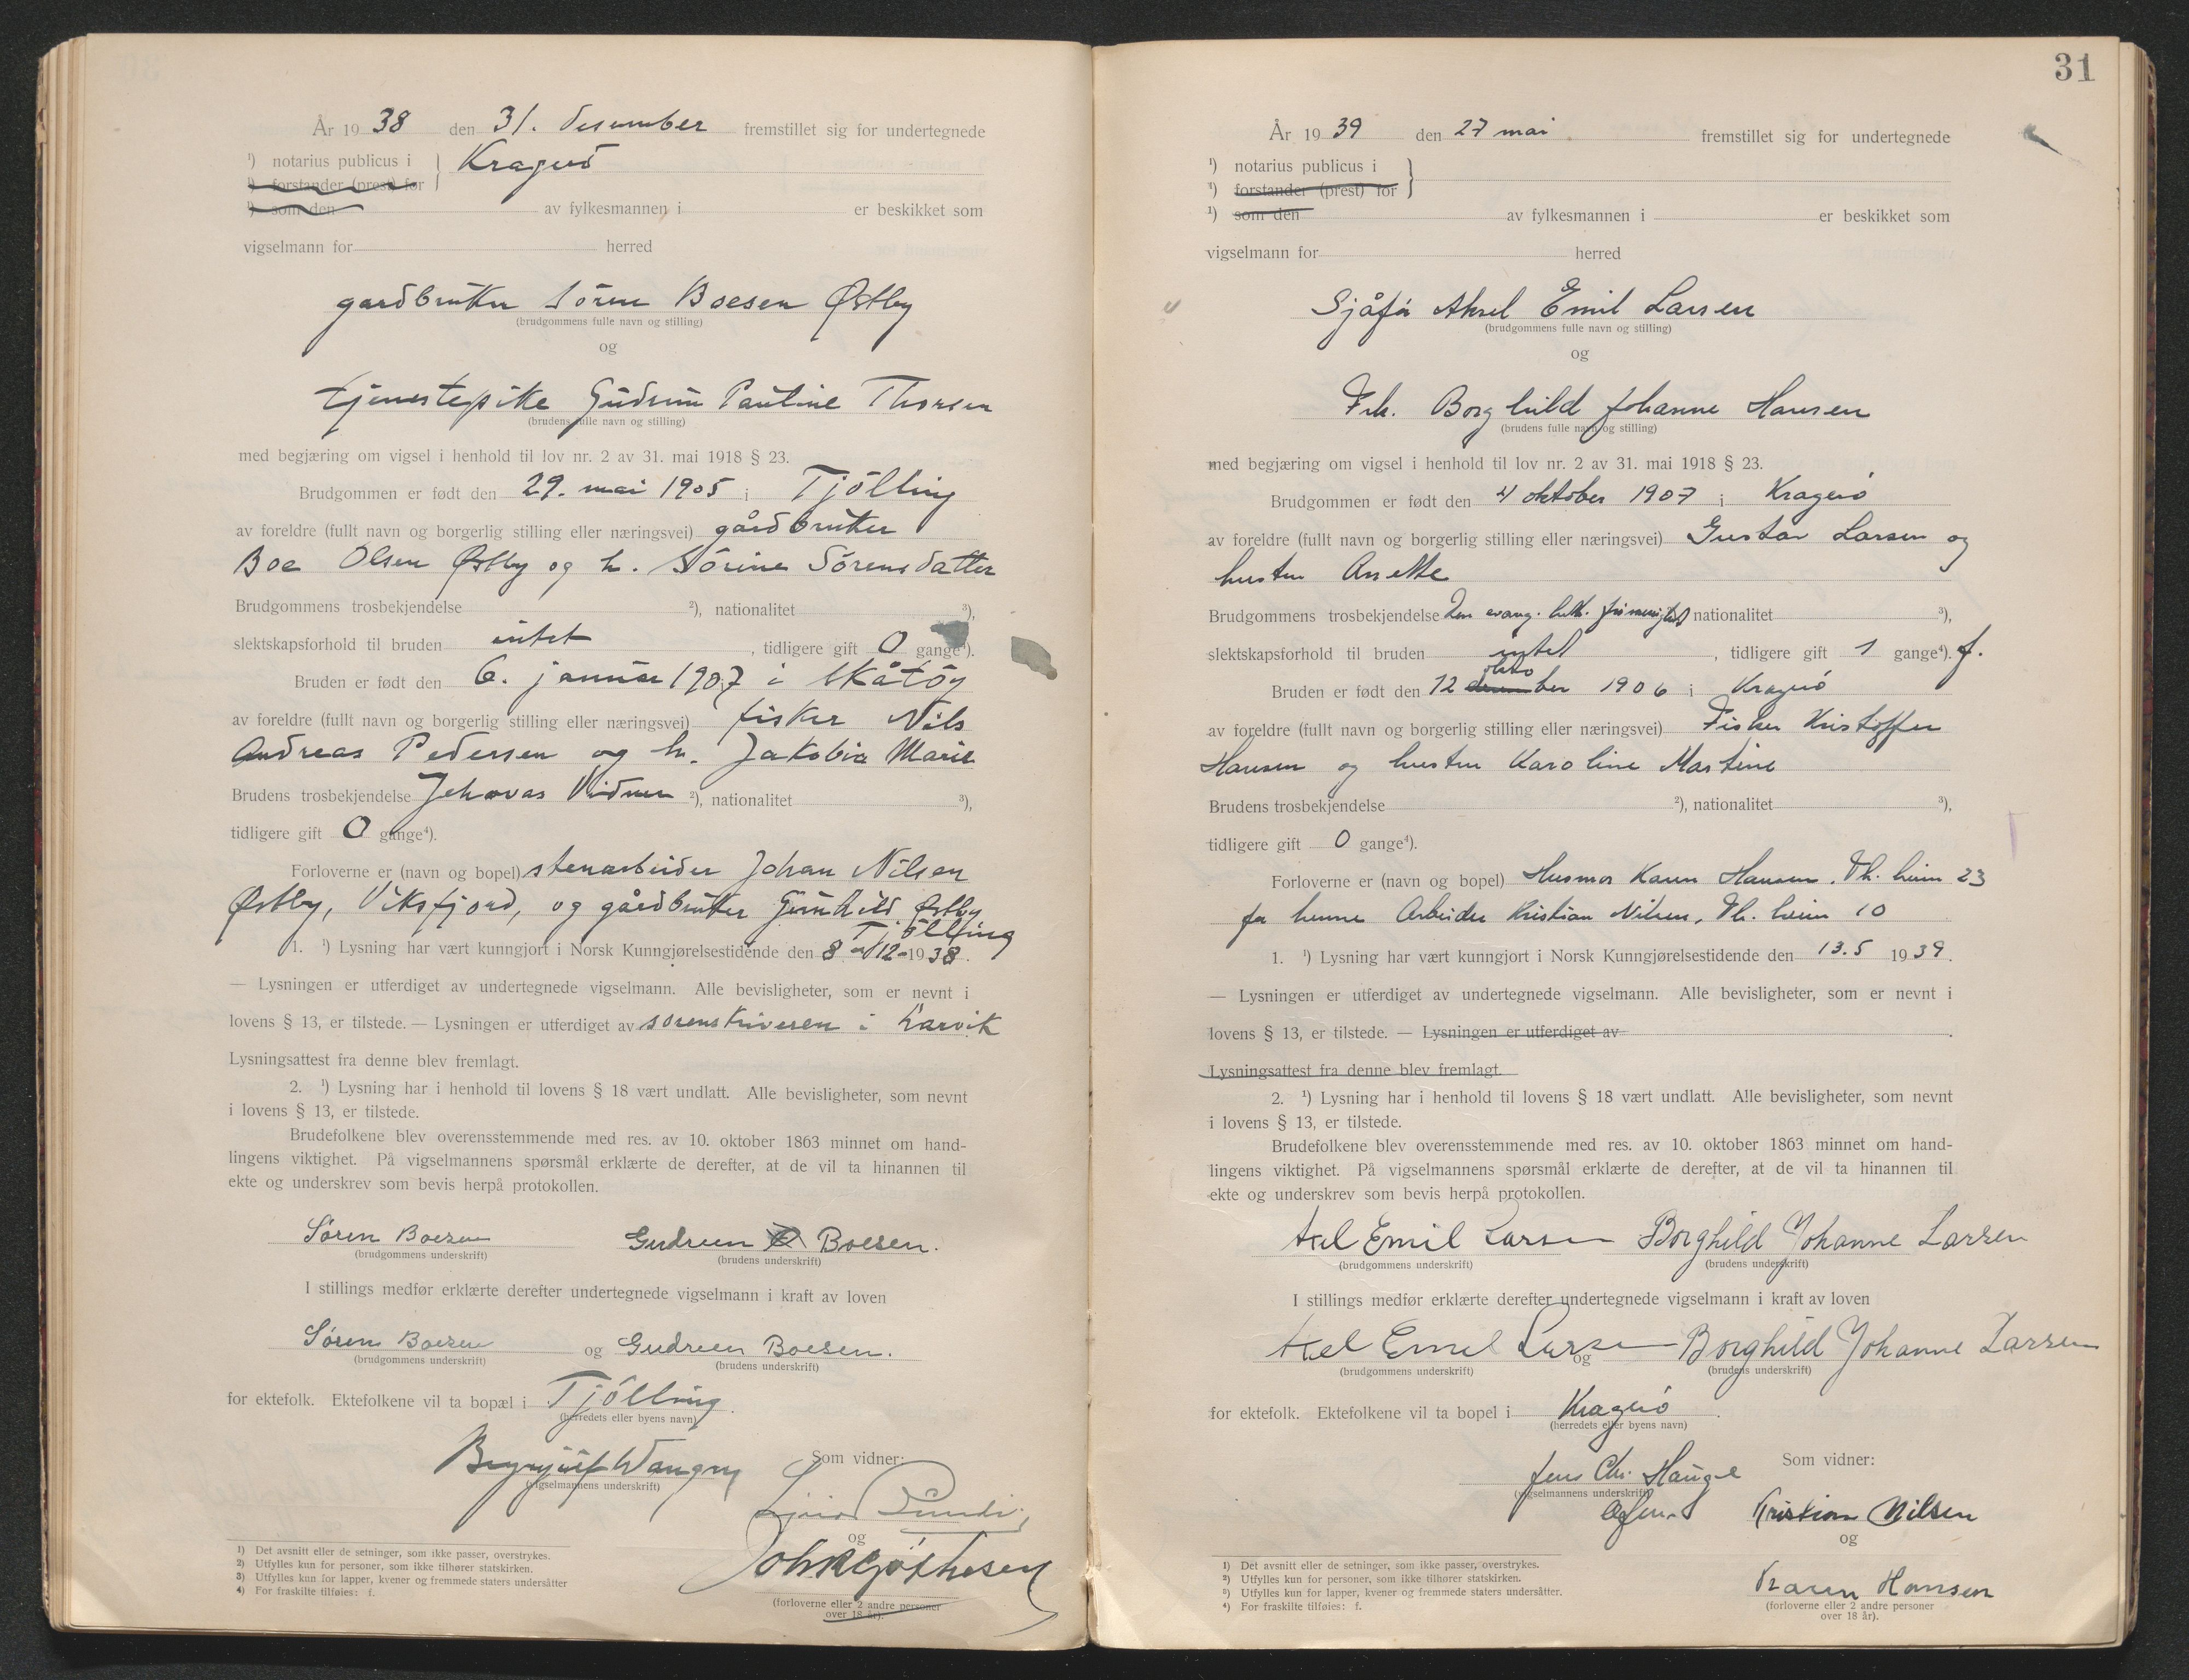 År 19 38 den 31. desember fremstillet sig for undertegnede
¹) notarius publicus i } Kragerø
¹) forstander (prest) for
¹) som den av fylkesmannen i er beskikket som
vigselmann for herred
gardbruker Sören Boesen Østby
(brudgommens fulle navn og stilling)
og
tjenestepike Gudrun Pauline Thorsen
(brudens fulle navn og stilling)
med begjæring om vigsel i henhold til lov nr. 2 av 31. mai 1918 § 23.
Brudgommen er født den 29. mai 1905 i Tjölling
av foreldre (fullt navn og borgerlig stilling eller næringsvei) gårdbruker
Boe Olsen Østby og h. Sörine Sörensdatter
Brudgommens trosbekjendelse ²), nationalitet ³),
slektskapsforhold til bruden intet , tidligere gift 0 gange⁴).
Bruden er født den 6. januar 1907 i Skåtöy
av foreldre (fullt navn og borgerlig stilling eller næringsvei) fisker Nils
Andreas Pedersen og h. Jakobia Marie
Brudens trosbekjendelse Jehovas Vidner ²), nationalitet ³),
tidligere gift 0 gange⁴).
Forloverne er (navn og bopel) stenarbeider Johan Nilsen
Østby, Viksfjord, og gårdbruker Gunhild Østby,
Tjölling
1. ¹) Lysning har vært kunngjort i Norsk Kunngjørelsestidende den 8/12-1938.
— Lysningen er utferdiget av undertegnede vigselmann. Alle bevisligheter, som er nevnt i
lovens § 13, er tilstede. — Lysningen er utferdiget av sorenskriveren i Larvik
Lysningsattest fra denne blev fremlagt.
2. ¹) Lysning har i henhold til lovens § 18 vært undlatt. Alle bevisligheter, som nevnt
i lovens § 13, er tilstede.
Brudefolkene blev overensstemmende med res. av 10. oktober 1863 minnet om hand-
lingens viktighet. På vigselmannens spørsmål erklærte de derefter, at de vil ta hinannen til
ekte og underskrev som bevis herpå protokollen.
Sören Boesen Gudrun Boesen.
(brudgommens underskrift) (brudens underskrift)
I stillings medfør erklærte derefter undertegnede vigselmann i kraft av loven
Sören Boesen og Gudrun Boesen.
(brudgommens underskrift) (brudens underskrift)
for ektefolk. Ektefolkene vil ta bopæl i Tjölling.
(herredets eller byens navn)
Som vidner:
(vigselmannens underskrift)
og
(forloverne eller 2 andre personer
over 18 år).
1) Det avsnitt eller de setninger, som ikke passer, overstrykes.
2) Utfylles kun for personer, som ikke tilhører statskirken.
3) Utfylles kun for lapper, kvener og fremmede staters undersåtter
4) For fraskilte tilføies: f.
31
År 19 39 den 27 mai fremstillet sig for undertegnede
¹) notarius publicus i }
¹) forstander (prest) for
¹) som den av fylkesmannen i er beskikket som
vigselmann for herred
Sjåfør Aksel Emil Larsen
(brudgommens fulle navn og stilling)
og
Frk. Borghild Johanne Hansen
(brudens fulle navn og stilling)
med begjæring om vigsel i henhold til lov nr. 2 av 31. mai 1918 § 23.
Brudgommen er født den 4 oktober 1907 i Kragerö
av foreldre (fullt navn og borgerlig stilling eller næringsvei) Gustav Larsen og
hustru Anette
Brudgommens trosbekjendelse Den evang. luth. frimenighet nationalitet ³),
slektskapsforhold til bruden intet , tidligere gift 1 gange⁴). f.
Bruden er født den 12 oktober 1906 i Kragerö
av foreldre (fullt navn og borgerlig stilling eller næringsvei) Fisker Kristoffer
Hansen og hustru Karoline Martine
Brudens trosbekjendelse ²), nationalitet ³),
tidligere gift 0 gange⁴).
Forloverne er (navn og bopel) Husmor Karen Hansen, Th. heim 23
for henne Arbeider Kristian Nilsen, Th. heim 10
1. ¹) Lysning har vært kunngjort i Norsk Kunngjørelsestidende den 13.5 1939.
— Lysningen er utferdiget av undertegnede vigselmann. Alle bevisligheter, som er nevnt i
lovens § 13, er tilstede. — Lysningen er utferdiget av
Lysningsattest fra denne blev fremlagt.
2. ¹) Lysning har i henhold til lovens § 18 vært undlatt. Alle bevisligheter, som nevnt
i lovens § 13, er tilstede.
Brudefolkene blev overensstemmende med res. av 10. oktober 1863 minnet om hand-
lingens viktighet. På vigselmannens spørsmål erklærte de derefter, at de vil ta hinannen til
ekte og underskrev som bevis herpå protokollen.
Axel Emil Larsen Borghild Johanne Larsen
(brudgommens underskrift) (brudens underskrift)
I stillings medfør erklærte derefter undertegnede vigselmann i kraft av loven
Axel Emil Larsen og Borghild Johanne Larsen
(brudgommens underskrift) (brudens underskrift)
for ektefolk. Ektefolkene vil ta bopel i Kragerö.
(herredets eller byens navn)
Jens Chr. Hauge Som vidner:
(vigselmannens underskrift)
Kristian Nilsen
og
Karen Hansen
(forloverne eller 2 andre personer
over 18 år).
1) Det avsnitt eller de setninger, som ikke passer, overstrykes.
2) Utfylles kun for personer, som ikke tilhører statskirken.
3) Utfylles kun for lapper, kvener og fremmede staters undersåtter.
4) For fraskilte tilføies: f.